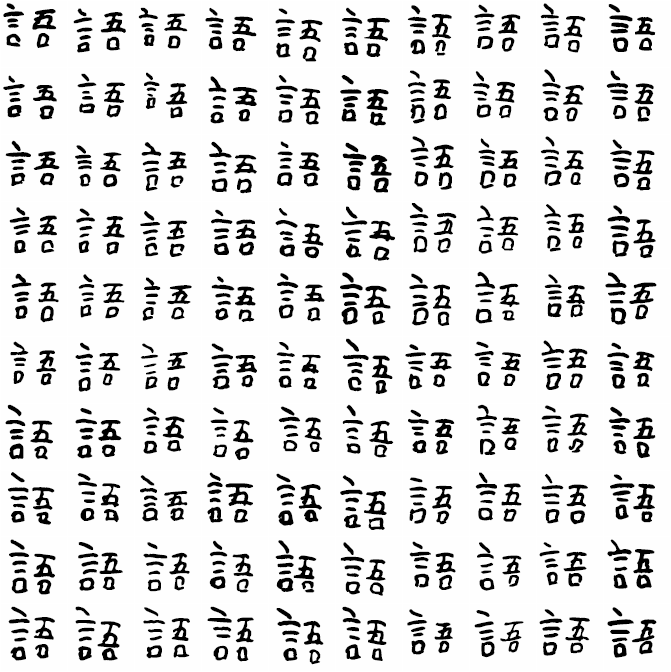 語語語語語語語語語語
語語語語語語語語語語
語語語語語語語語語語
語語語語語語語語語語
語語語語語語語語語語
語語語語語語語語語語
語語語語語語語語語語
語語語語語語語語語語
語語語語語語語語語語
語語語語語語語語語語